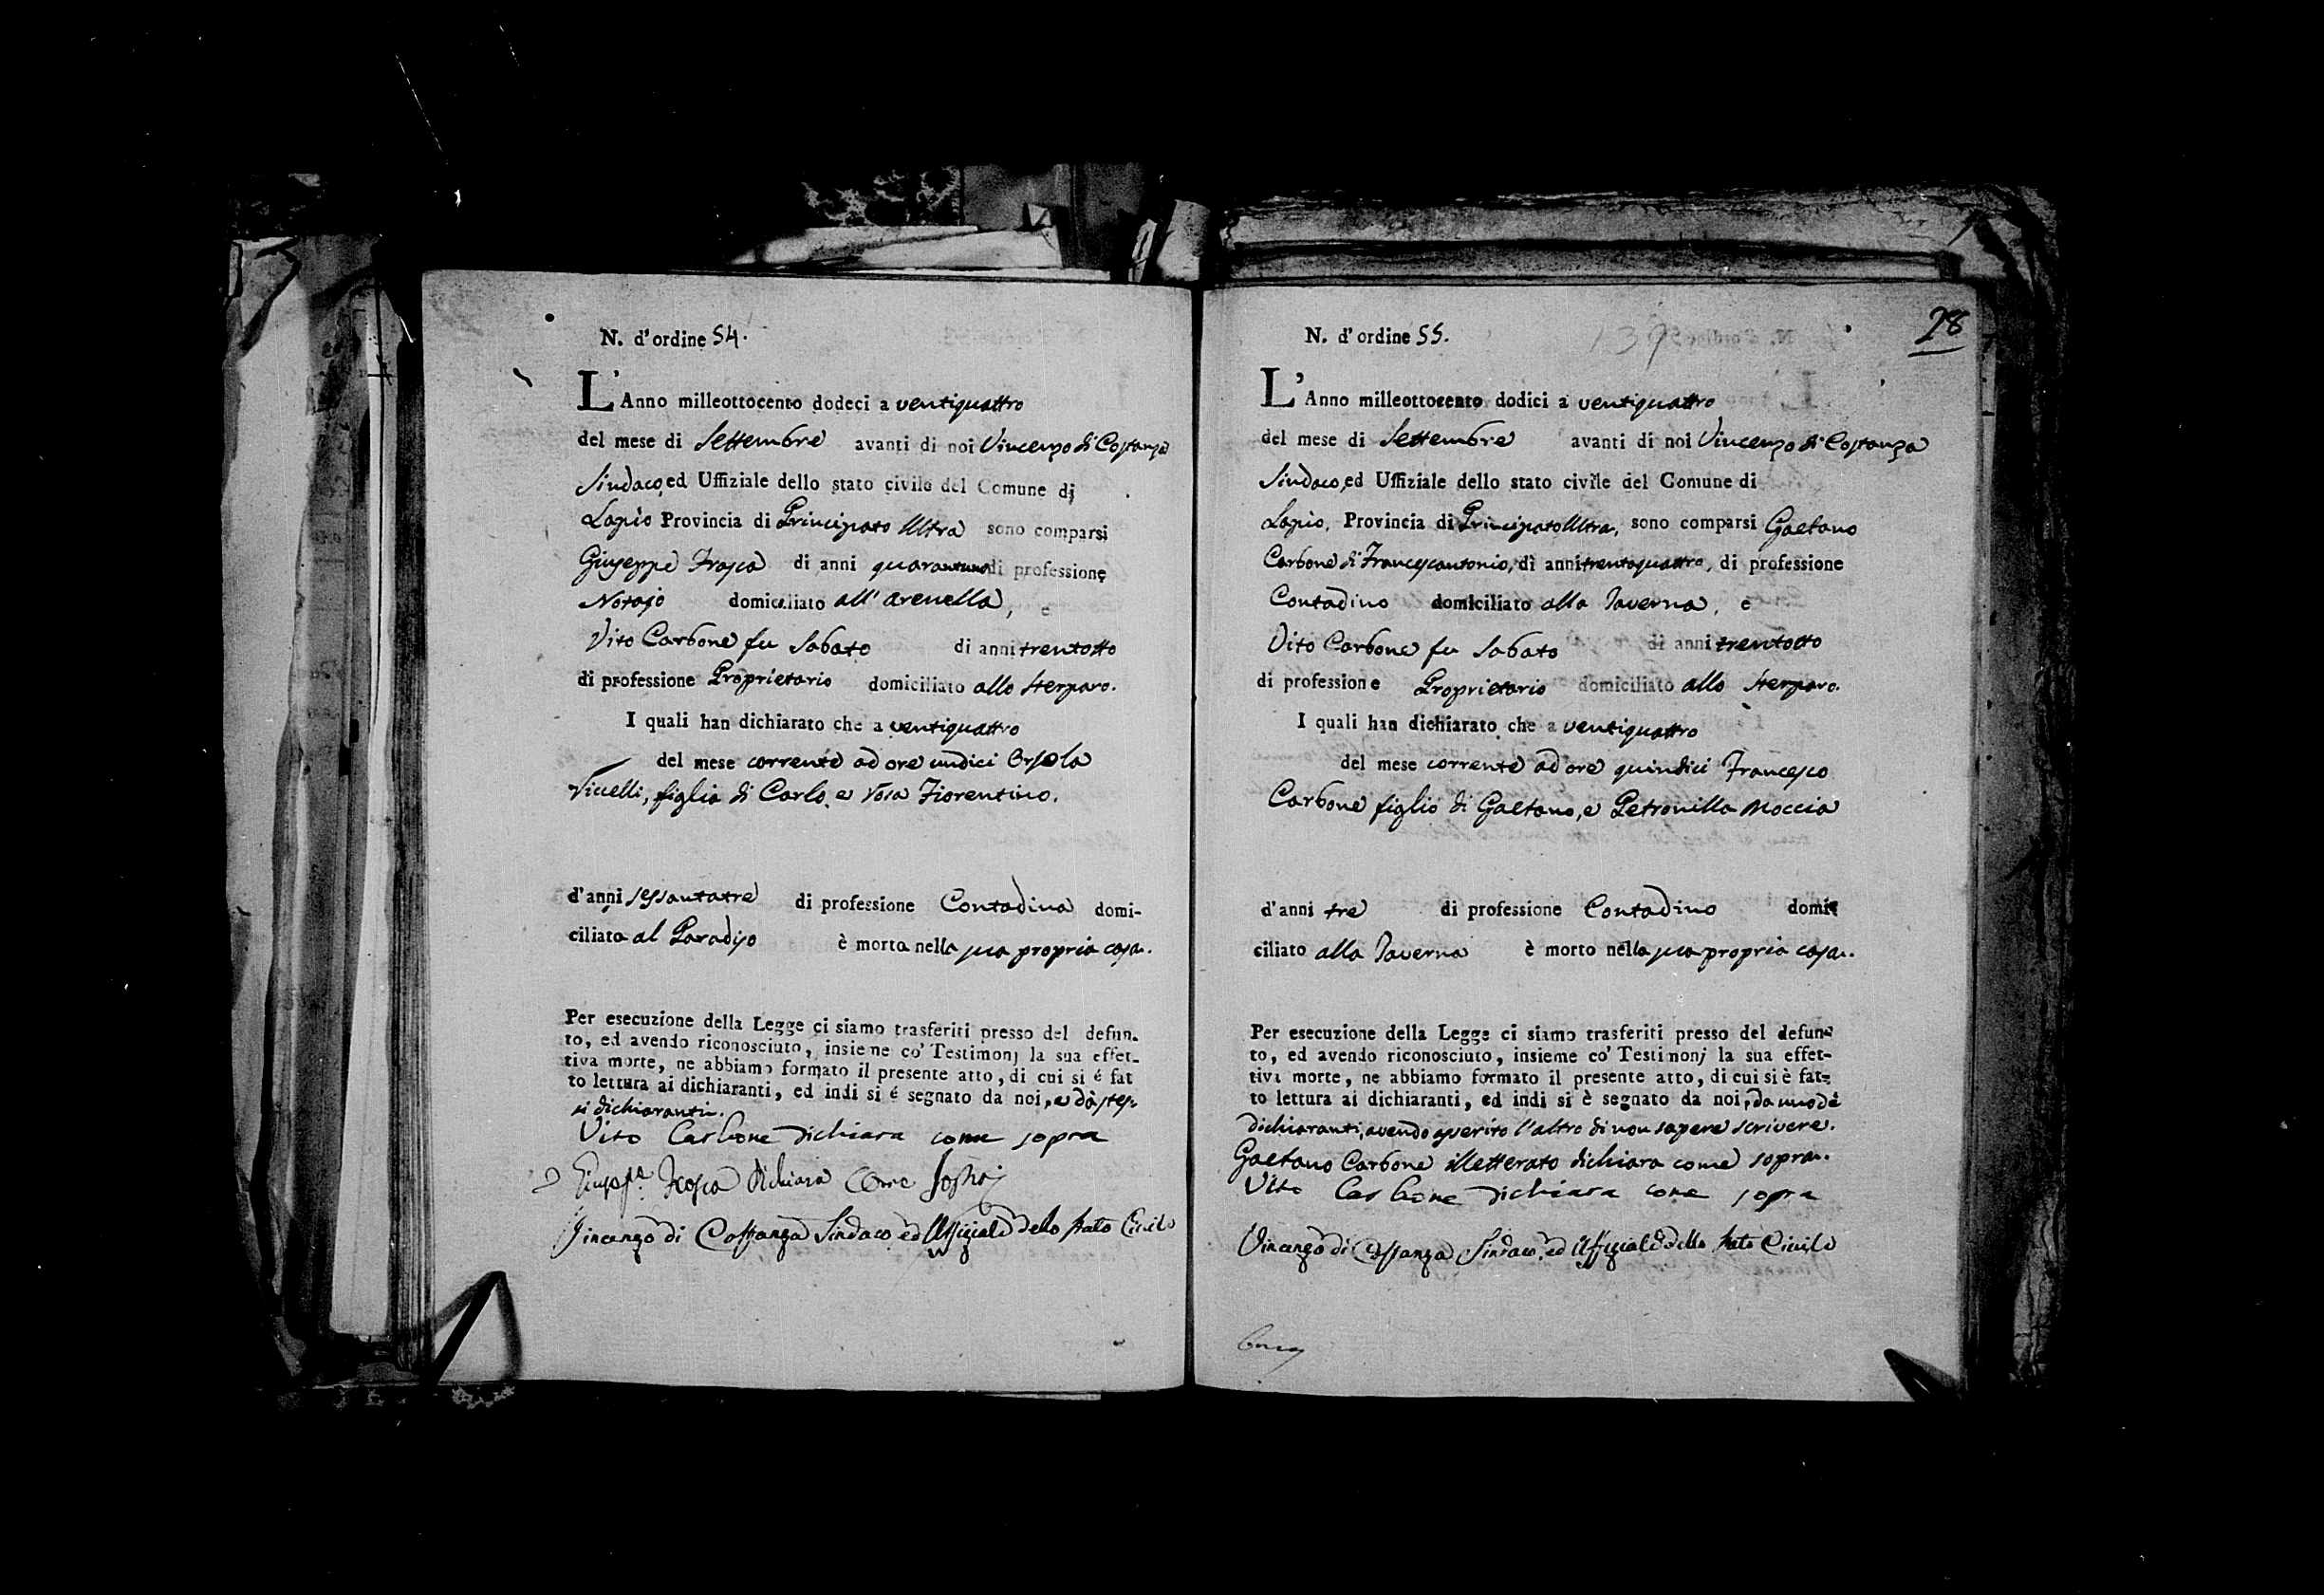 N. d'ordine 54.
L'Anno milleottocento dodeci a ventiquattro
del mese di Settembre avanti di noi Vincenzo di Costanza
Sindaco, ed Uffiziale dello stato civile del Comune di
Lapio Provincia di Principato Ultra sono comparsi
Giuseppe Frasca di anni quarantuno di professione
Notajo domiciliato all' Arenella, e
Vito Carbone fu Sabato di anni trentotto
di professione Proprietario domiciliato allo Sterparo.
I quali han dichiarato che a ventiquattro
del mese corrente ad ore undici Orsola
figlia di Carlo, e Rosa Fiorentino.
d'anni sessantatre di professione Contadina domi-
ciliata al Paradiso è morta nella sua propria casa.
Per esecuzione della Legge ci siamo trasferiti presso del defun-
to, ed avendo riconosciuto, insieme co' Testimonj la sua effet-
tiva morte, ne abbiamo formato il presente atto, di cui si é fat
to lettura ai dichiaranti, ed indi si é segnato da noi, e da stes-
si dichiaranti.
Vito Carbone dichiara come sopra
Giusep.e Frasca dichiara come sopra
Vincenzo di Costanza Sindaco ed Uffiziale dello stato Civile
28
N. d'ordine 55.
139
L'Anno milleottocento dodici a ventiquattro
del mese di Settembre avanti di noi Vincenzo di Costanza
Sindaco, ed Uffiziale dello stato civile del Comune di
Lapio, Provincia di Principato Ultra, sono comparsi Gaetano
Carbone di Francescantonio, di anni trentaquattro, di professione
Contadino domiciliato alla Taverna, e
Vito Carbone fu Sabato di anni trentotto
di professione Proprietario domiciliato allo Sterparo.
I quali han dichiarato che a ventiquattro
del mese corrente ad ore quindici Francesco
Carbone figlio di Gaetano, e Petronilla Moccia
d'anni tre di professione Contadino domi-
ciliato alla Taverna è morto nella sua propria casa.
Per esecuzione della Legge ci siamo trasferiti presso del defun-
to, ed avendo riconosciuto, insieme co' Testimonj la sua effet-
tiva morte, ne abbiamo formato il presente atto, di cui si è fat-
to lettura ai dichiaranti, ed indi si è segnato da noi, da uno de
dichiaranti, avendo asserito l'altro di non sapere scrivere.
Gaetano Carbone illetterato dichiara come sopra.
Vito Carbone dichiara come sopra
Vincenzo di Costanza Sindaco, ed Uffiziale dello stato Civile